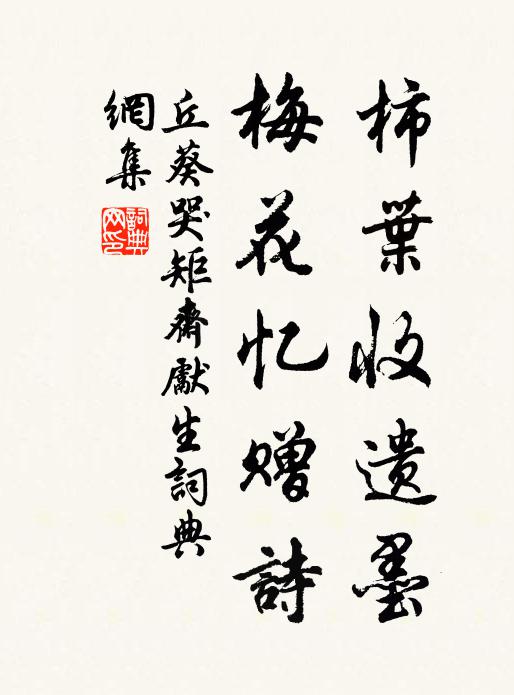 柿葉收遺墨
梅花忆赠詩
丘葵哭矩齋獻生詞典
網集
詞典網印